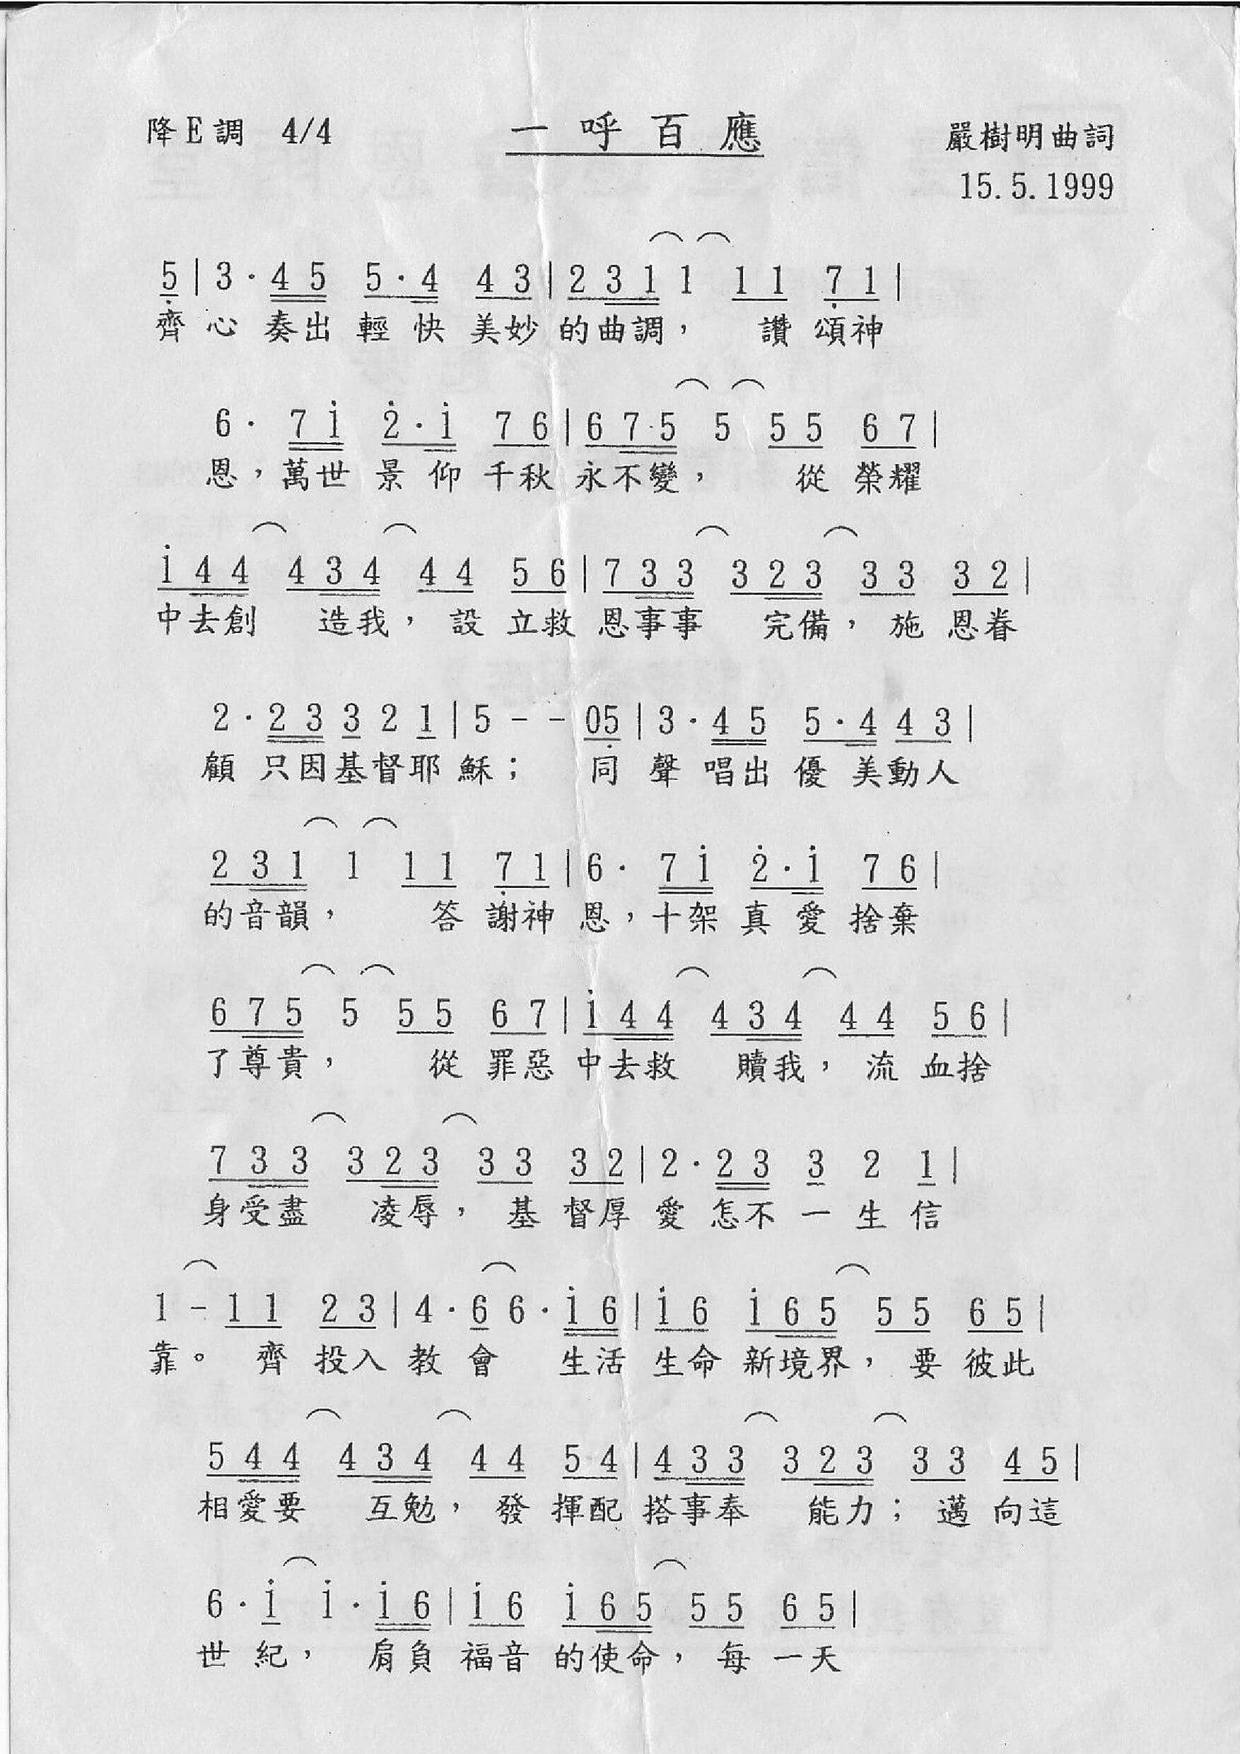 降E調 4/4 一呼百應 嚴樹明曲詞
15.5.1999
5|3·45 5·4 43|231 1 11 71|
齊心奏出輕快美妙的曲調， 讚頌神
6· 71 2·1 76|675 5 55 67|
恩，萬世景仰千秋永不變， 從榮耀
144 434 44 56|733 323 33 32|
中去創 造我，設立救恩事事 完備，施恩眷
2·23 3 2 1|5-- 05|3·45 5·4 43|
顧只因基督耶穌； 同聲唱出優美動人
231 1 11 71|6· 71 2·1 76|
的音韻， 答謝神恩，十架真愛捨棄
675 5 55 67|144 434 44 56|
了尊貴， 從罪惡中去救 贖我，流血捨
733 323 33 32|2·23 3 2 1|
身受盡 凌辱，基督厚愛怎不一生信
1-11 23|4·6 6·16|16 165 55 65|
靠。齊投入教會 生活生命新境界，要彼此
544 434 44 54|433 323 33 45|
相愛要 互勉，發揮配搭事奉 能力；邁向這
6·1 1·16|16 165 55 65|
世紀， 肩負福音的使命，每一天